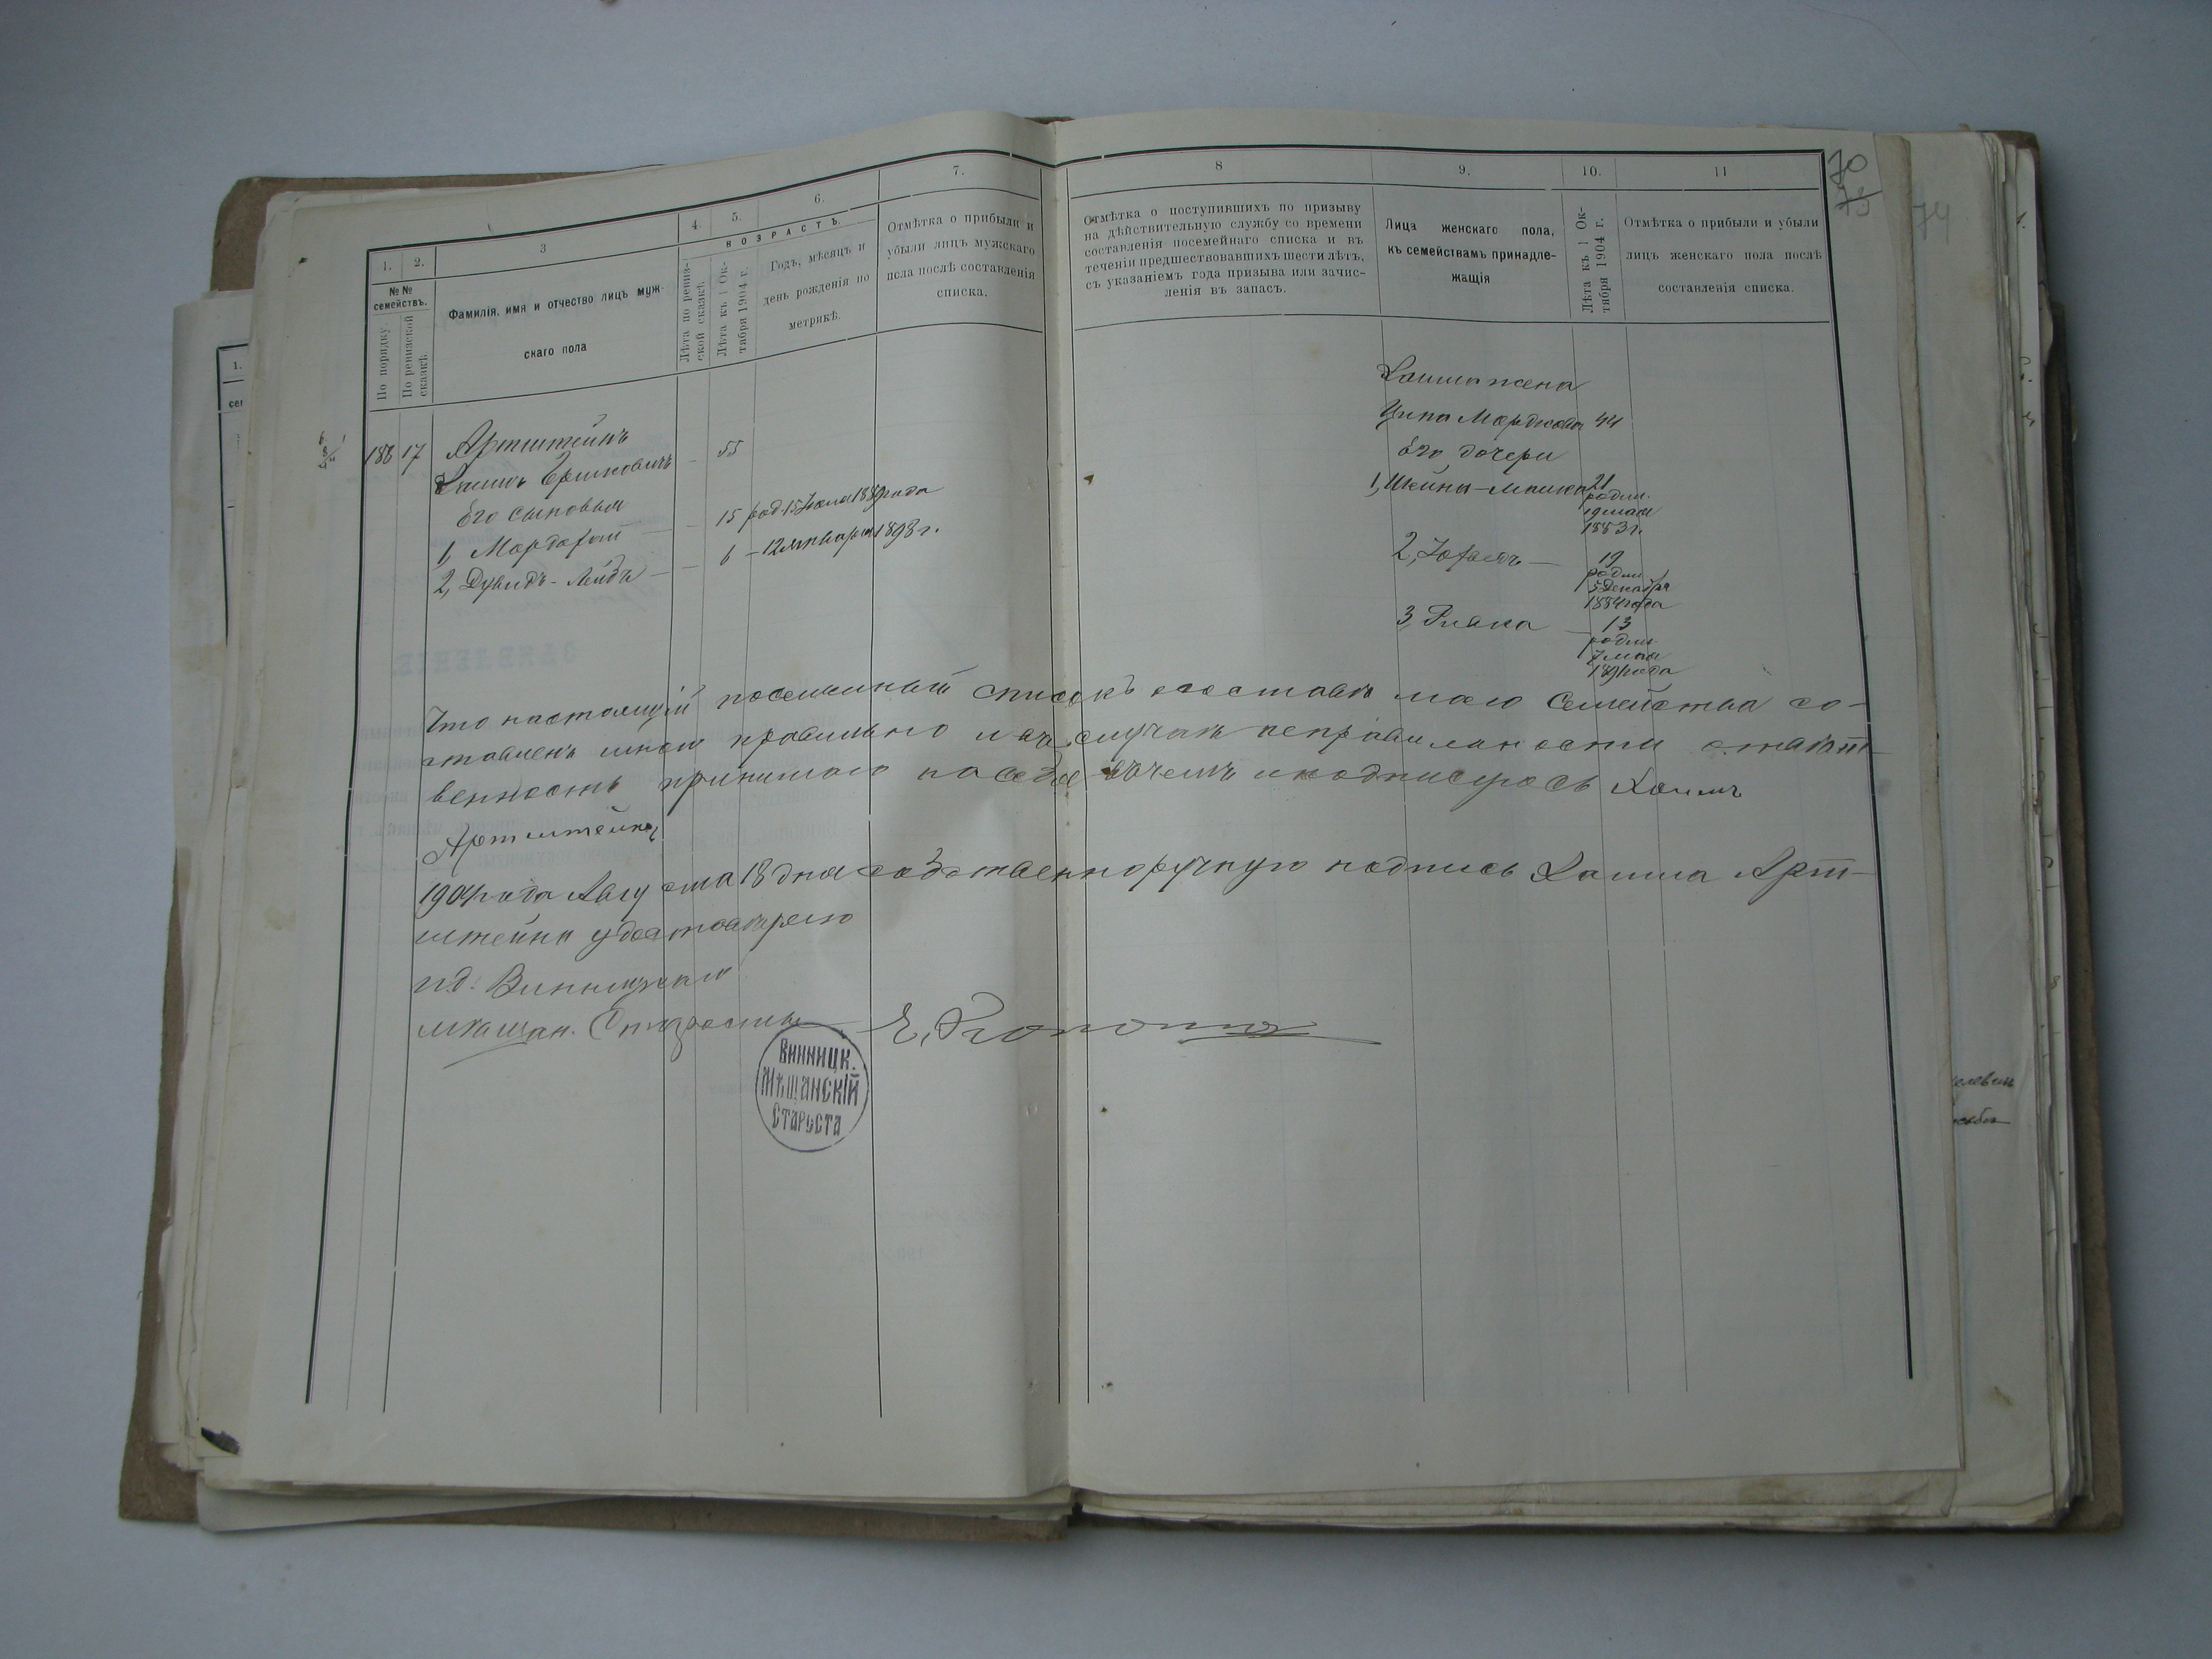 1.
2.
3
4.
5.
6.
7.
8
9.
10.
11
70
75
74
№№ семействъ.
По порядку
По ревизской сказкѣ.
Фамилія, имя и отчество лицъ муж-
скаго пола
ВОЗРАСТЪ.
Лѣта по ревиз-
ской сказкѣ.
Лѣта къ 1 Ок-
тября 1904 г.
Годъ, мѣсяцъ и
день рожденія по
метрикѣ.
Отмѣтка о прибыли и
убыли лицъ мужскаго
пола послѣ составленія
списка.
Отмѣтка о поступившихъ по призыву
на дѣйствительную службу со времени
составленія посемейнаго списка и въ
теченіи предшествовавшихъ шести лѣтъ,
съ указаніемъ года призыва или зачис-
ленія въ запасъ.
Лица женскаго пола,
къ семействамъ принадле-
жащія
Лѣта къ 1 Ок-
тября 1904 г.
Отмѣтка о прибыли и убыли
лицъ женскаго пола послѣ
составленія списка.
188 17 Артштейнъ
Хаимъ Ершковичъ — 55
Его сыновья
1, Мордахай — 15 род 15 Іюля 1889 года
2, Дувидъ-Лейбъ — 6 — 12 января 1898 г.
Хаима жена
Ципа Мордкова 44
Его дочери
1, Шейна-Машка 21
родил.
19 мая
1883 г.
2, — 19
родил
5 Декабря
1884 года
3, — 13
родил.
7 мая
1891 года
Что настоящій посемейный списокъ о составѣ моего Семейства со-
ставленъ мною правильно и въ случаѣ неправильности отвѣтст-
венность принимаю на себя въ чемъ и подписуюсь Хаимъ
Артштейнъ
1904 года Августа 18 дня собственноручную подпись Хаима Арт-
штейна удостовѣряю
и.д. Винницкаго
мѣщан. Старосты
Винницк.
Мѣщанскій
Староста